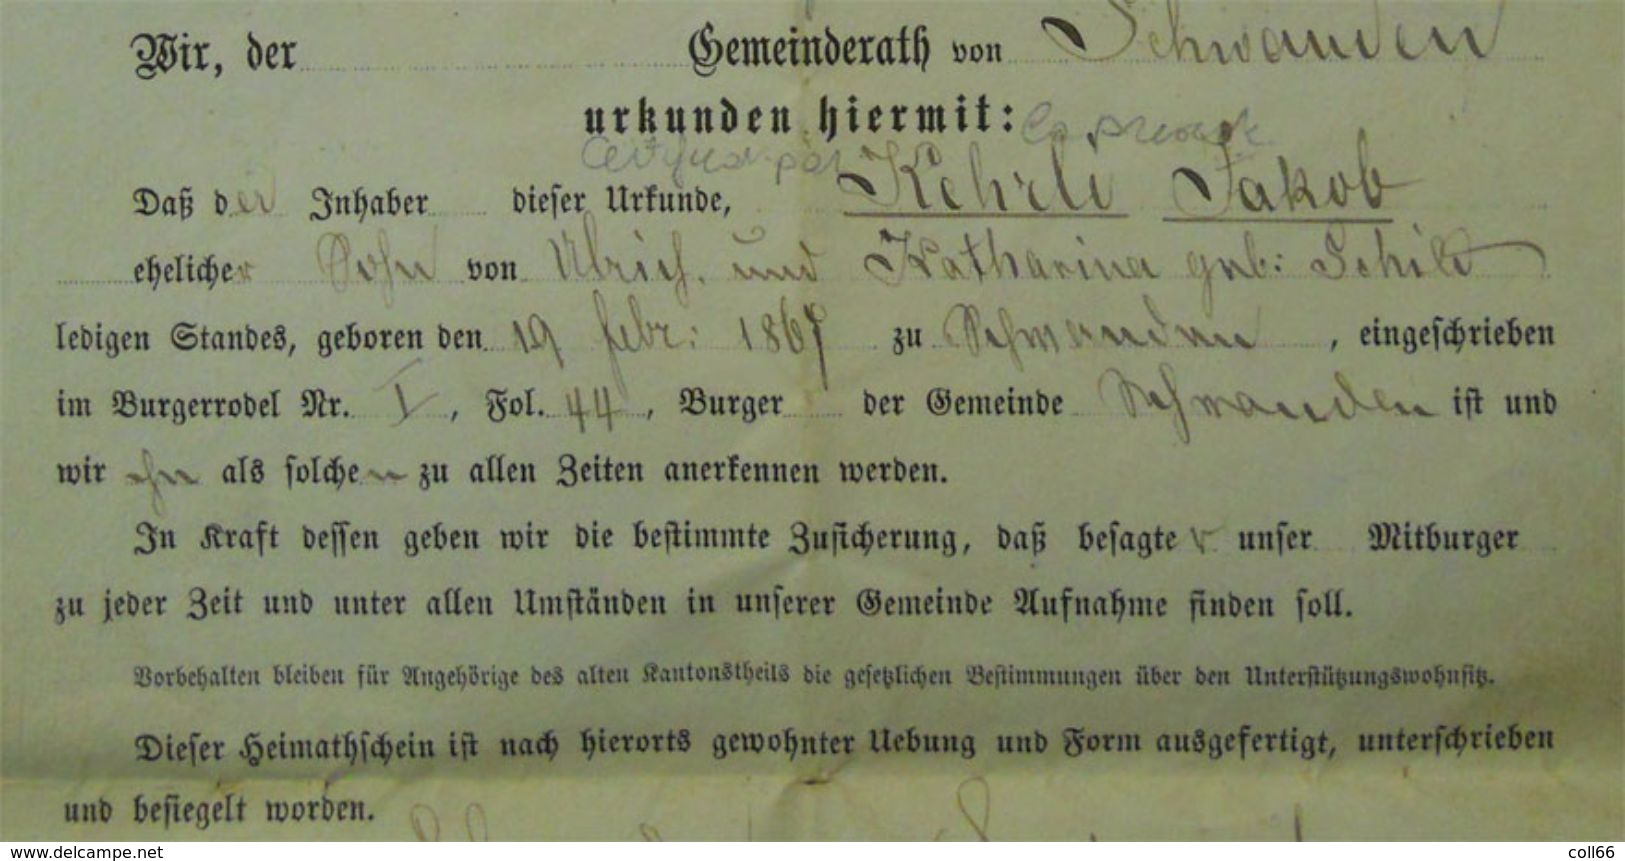 Wir, der Gemeinderath von Schwanden
urkunden hiermit:
Daß der Inhaber dieser Urkunde, Kehrli Jakob
ehelicher Sohn von Ulrich. und Katharina geb: Schild
ledigen Standes, geboren den 19 febr: 1867 zu Schwanden, eingeschrieben
im Burgerrodel Nr. I, Fol. 44, Burger der Gemeinde Schwanden ist und
wir ihn als solchen zu allen Zeiten anerkennen werden.
In Kraft dessen geben wir die bestimmte Zusicherung, daß besagter unser Mitburger
zu jeder Zeit und unter allen Umständen in unserer Gemeinde Aufnahme finden soll.
Vorbehalten bleiben für Angehörige des alten Kantonstheils die gesetzlichen Bestimmungen über den Unterstützungswohnsitz.
Dieser Heimathschein ist nach hierorts gewohnter Uebung und Form ausgefertigt, unterschrieben
und besiegelt worden.
www.delcampe.net
coll66